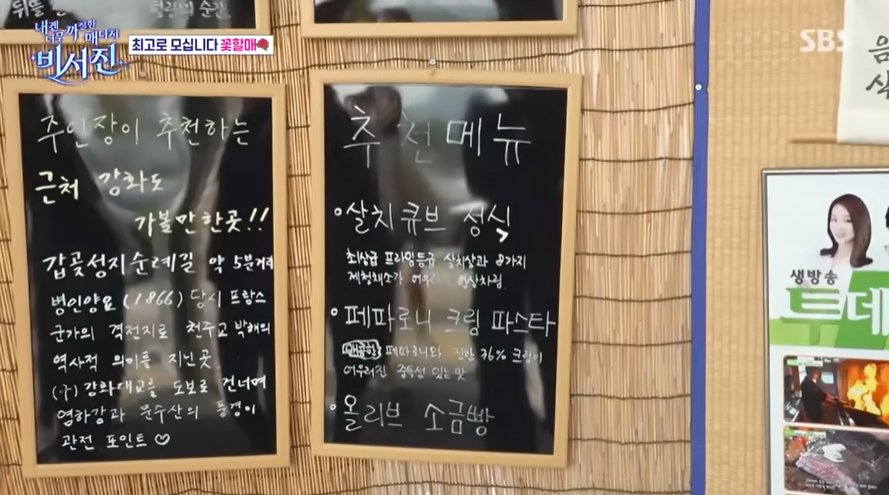 뒤뜰
내겐
너무 까칠한
매니저
비서진
최고로 모십니다 꽃할매
SBS
주인장이 추천하는
근처 강화도
가볼만한곳!!
갑곶성지순례길 약 5분거리
병인양요 (1866) 당시 프랑스
군과의 격전지로 천주교 박해의
역사적 의미를 지닌 곳.
(구) 강화대교를 도보로 건너며
염하강과 문수산의 풍경이
관전 포인트♡
추천메뉴
살치큐브 정식
최상급 프라임등급 살치살과 8가지
제철채소가 한상차림.
페파로니 크림 파스타
매콤한 페파로니와 진한 36% 크림이
어우러진 중독성 있는 맛
올리브 소금빵
음
식
생방송
투데